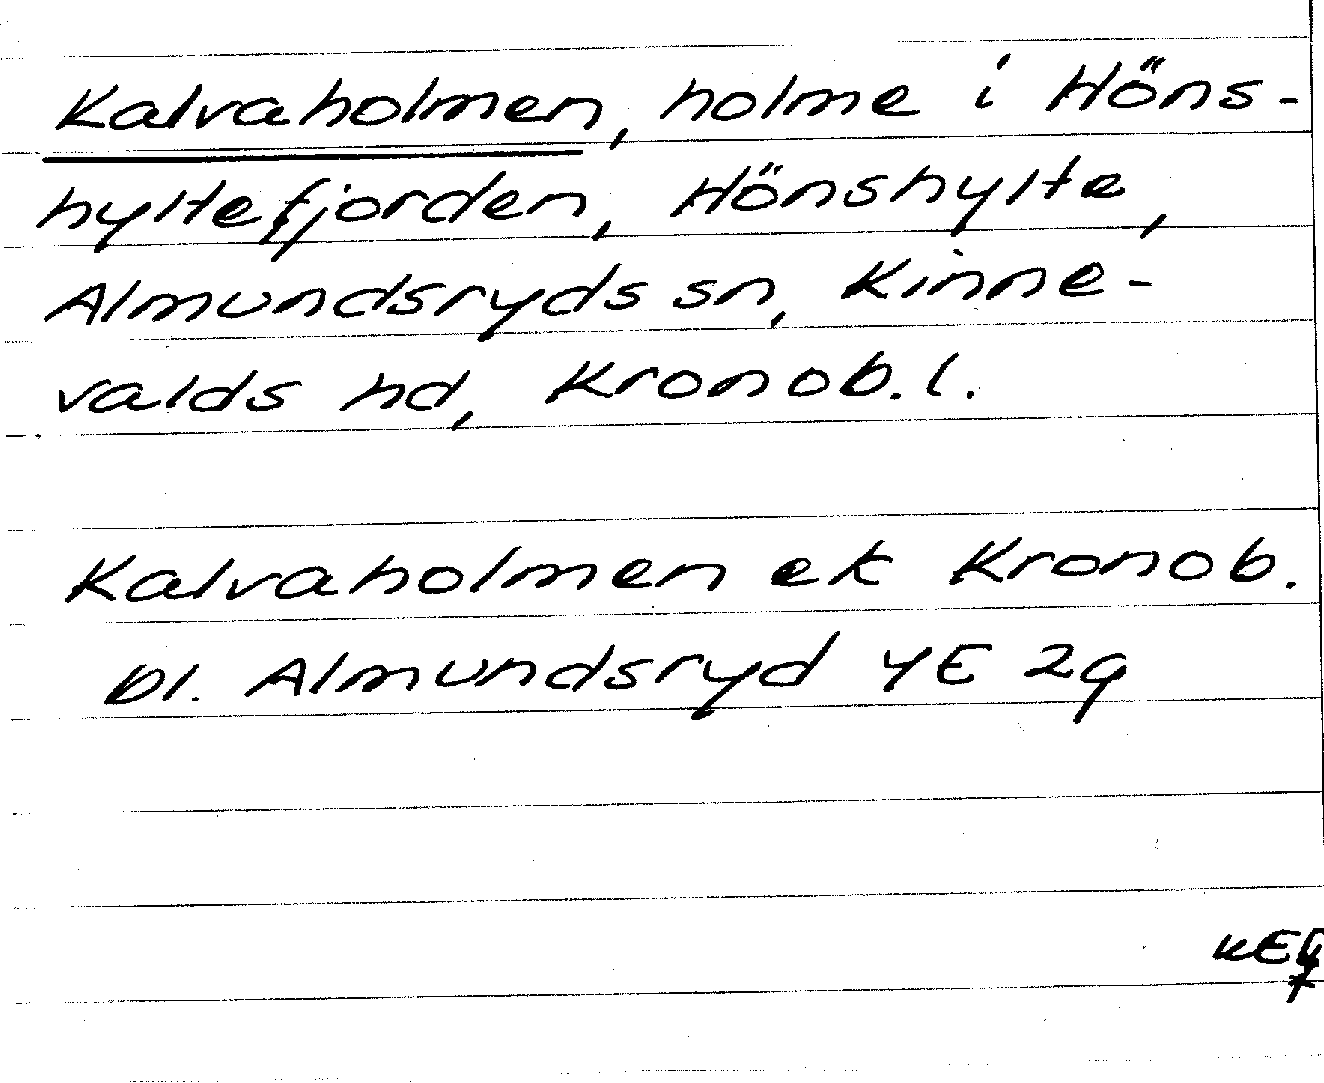 Kalvaholmen, holme i Höns-
hyltefjorden, Hönshylte,
Almundsryds sn, Kinne-
valds hd, Kronob. l.
Kalvaholmen ek Kronob.
bl. Almundsryd 4E 2g